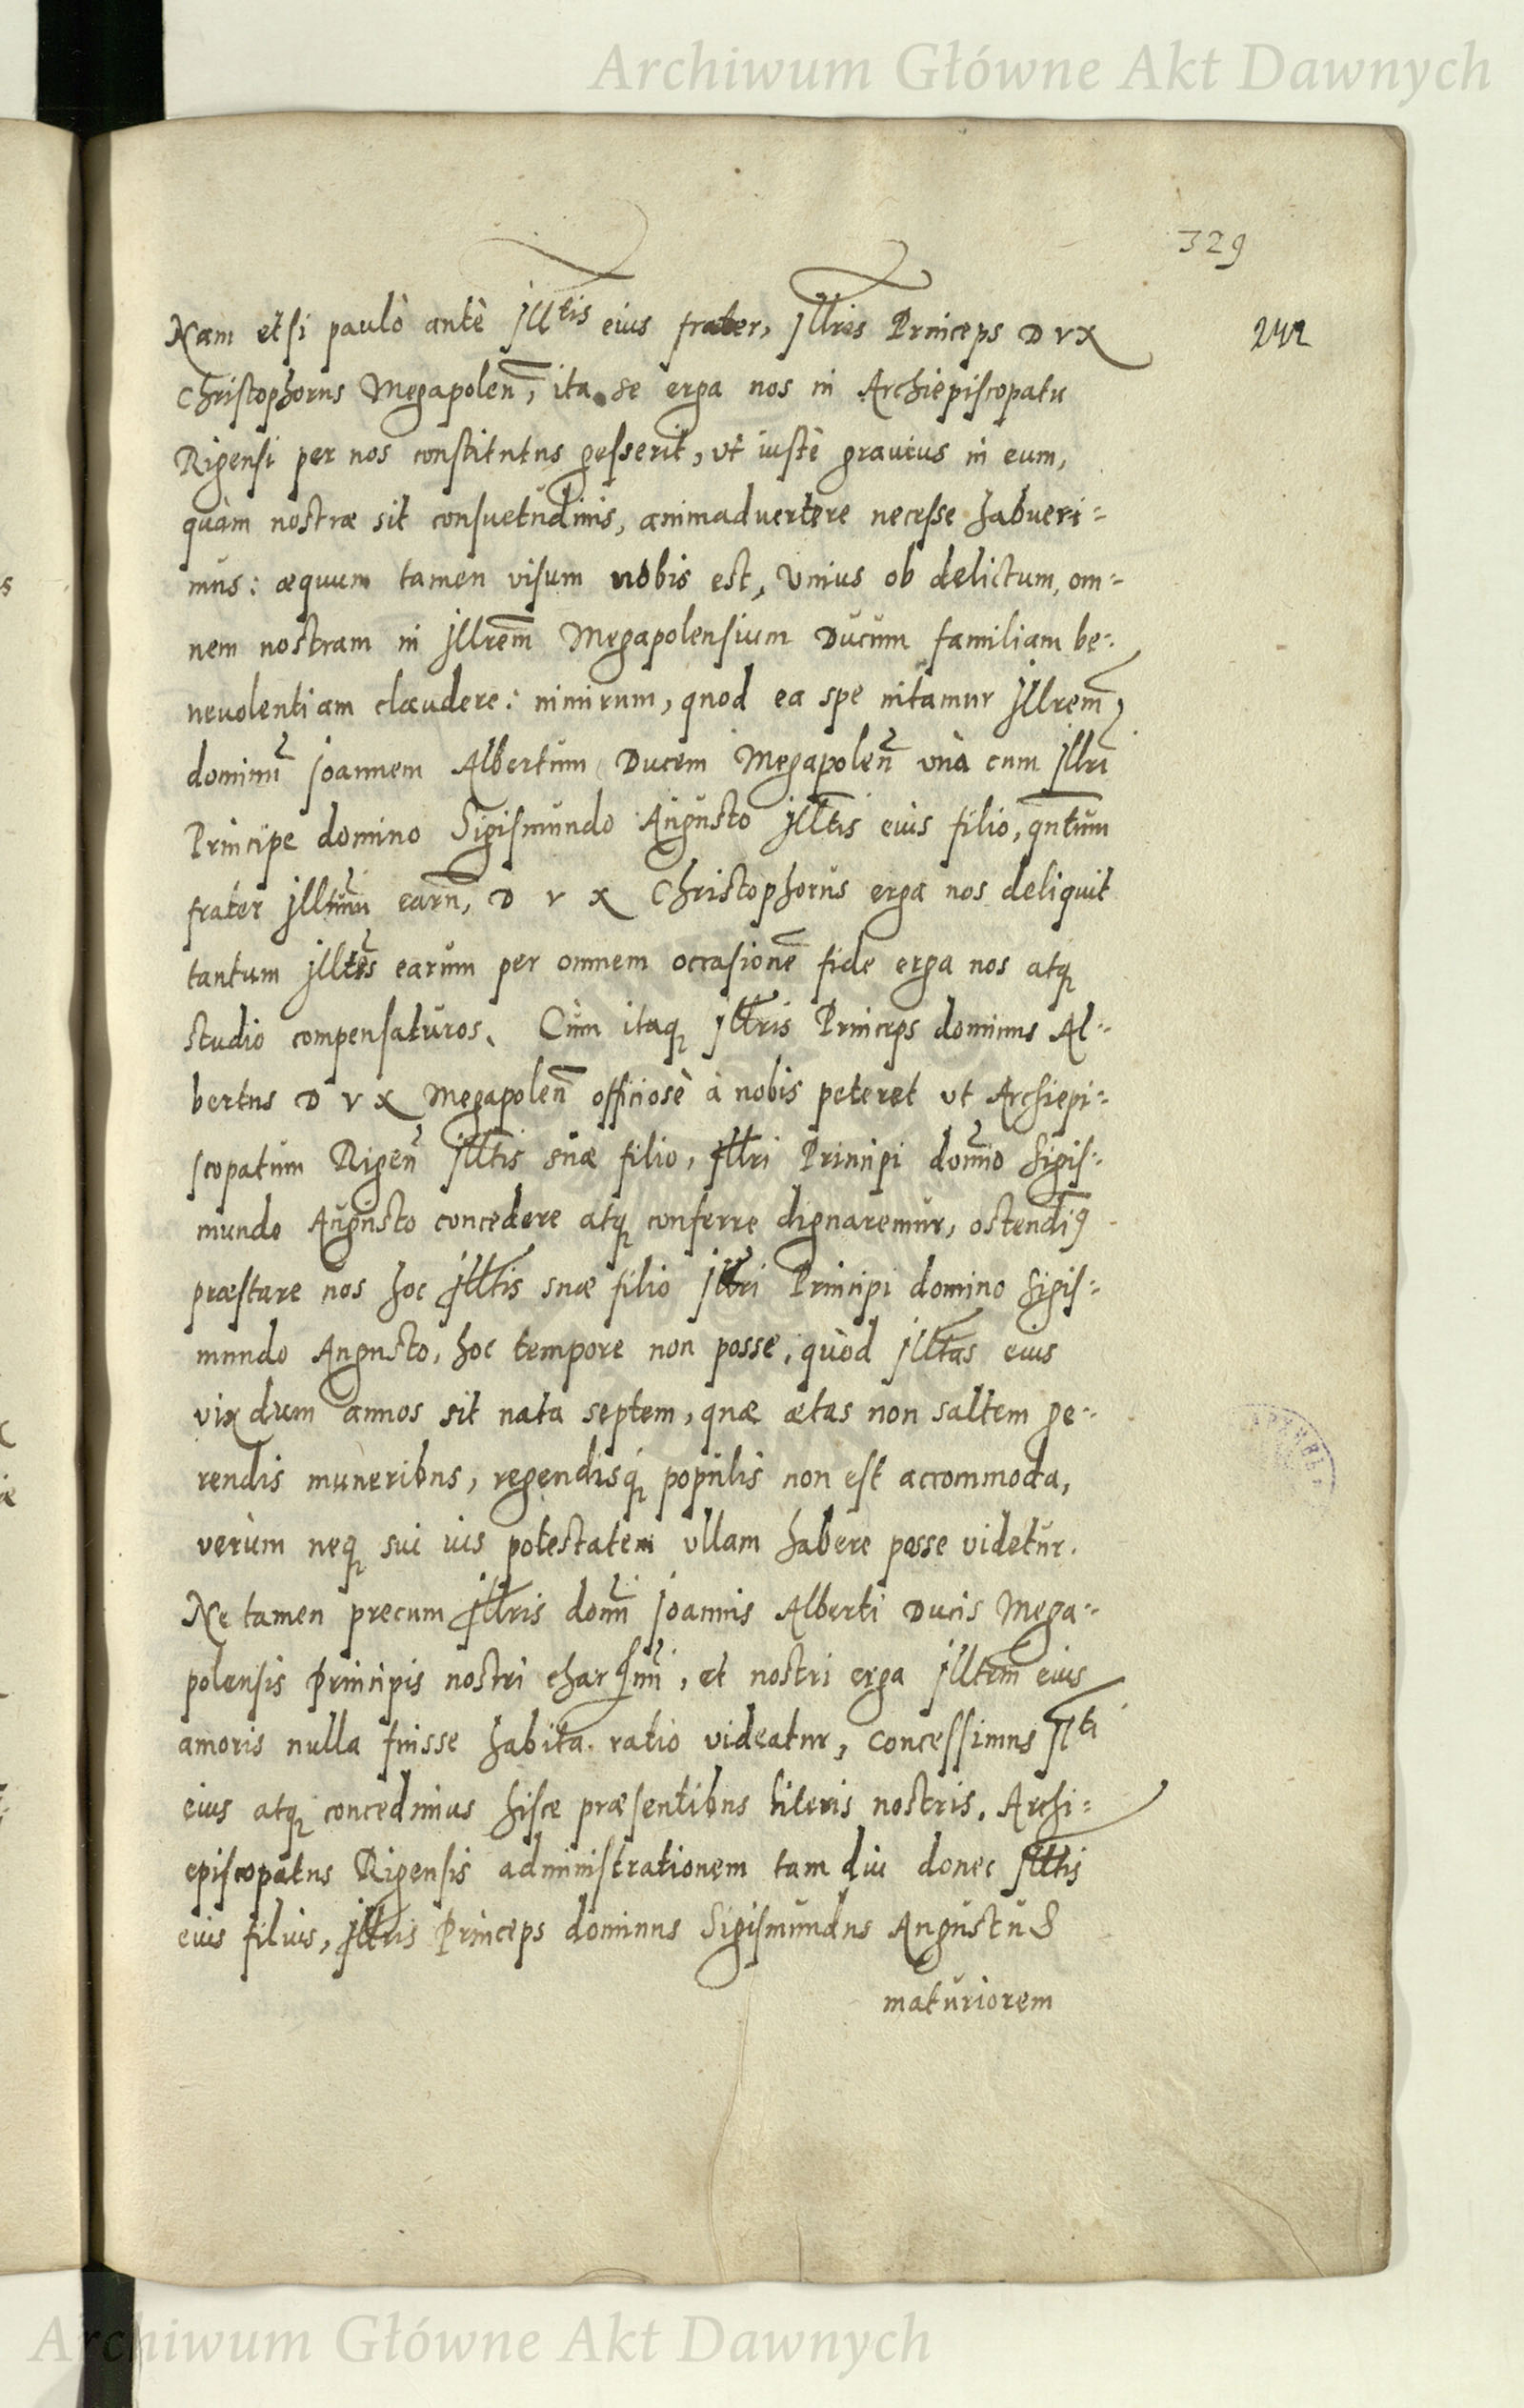 Archiwum Główne Akt Dawnych
329
Nam etsi paulò antè Jlltis eius frater, Jllris Princeps DVX
242
Christophorus Megapolen̄, ita se erga nos in Archiepiscopatu
Rigensi per nos constitutus gesserit, vt iustè grauius in eum,
quàm nostræ sit consuetudinis, animaduertere necesse habueri=
mus: æquum tamen visum nobis est, Vnius ob delictum, om=
nem nostram in Jllrem̄ Megapolensium Ducum familiam be=
neuolentiam claudere: nimirum, quod ea spe nitamur Jllrem̄
dominū Joannem Albertum Ducem Megapolen̄ vnà cum Jllri
Principe domino Sigismundo Augusto Jlltis eius filio, qntum
frater Jlltum earū, D V X Christophorus erga nos deliquit
tantum Jlltes earum per omnem occasionē fide erga nos atq
studio compensaturos. Cùm itaq Jllris Princeps dominus Al=
bertus D V X Megapolen̄ officiosè à nobis peteret vt Archiepi=
scopatum Rigen̄ Jlltis suæ filio, Jllri Principi domīo Sigis=
mundo Augusto concedere atq conferre dignaremur, ostendim9
præstare nos hoc Jlltis suæ filio Jllri Principi domino Sigis=
mundo Augusto, hoc tempore non posse, quòd Jlltas eius
vix dum annos sit nata septem, quæ ætas non saltem ge=
rendis muneribus, regendisq populis non est accommoda,
verùm neq sui ius potestatem vllam habere posse videtur.
Ne tamen precum Jllris domī Joannis Alberti Ducis Mega=
polensis Principis nostri charssimi, et nostri erga Jlltem eius
amoris nulla fuisse habita ratio videatur, concessimus Jllti
eius atq concedimus hisce præsentibus literis nostris, Archi=
episcopatus Rigensis administrationem tam diu donec Jlltis
eius filius, Jllris Princeps dominus Sigismundus Augustus
maturiorem
Archiwum Główne Akt Dawnych